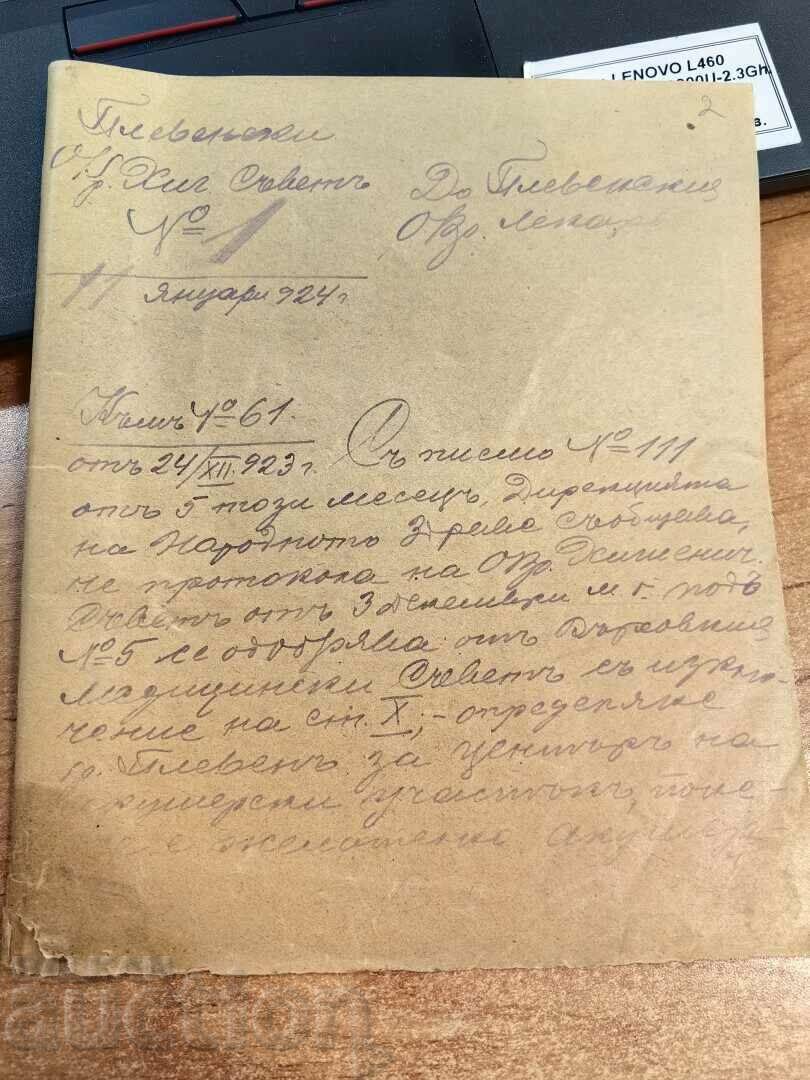 LENOVO L460
-2.3Gh.
в.
2
Плевенски
Окр. Хиг. Съветъ
До Плевенския
Окр. Лекар
№ 1
11
януари 924 г.
Към № 61.
отъ 24/XII.923 г.
Съ писмо № 111
отъ 5 този месецъ, Дирекцията
на Народното Здраве съобщава,
че протокола на Окр. Хигиенич.
Съветъ отъ 3 Декемврий м. г. подъ
№ 5 се одобрява отъ Върховния
медицински Съветъ съ изклю-
чение на ст. X; - определяне
гр. Плевенъ за центъръ на
акушерски участъкъ, поне-
е желателно акушер-
Auction